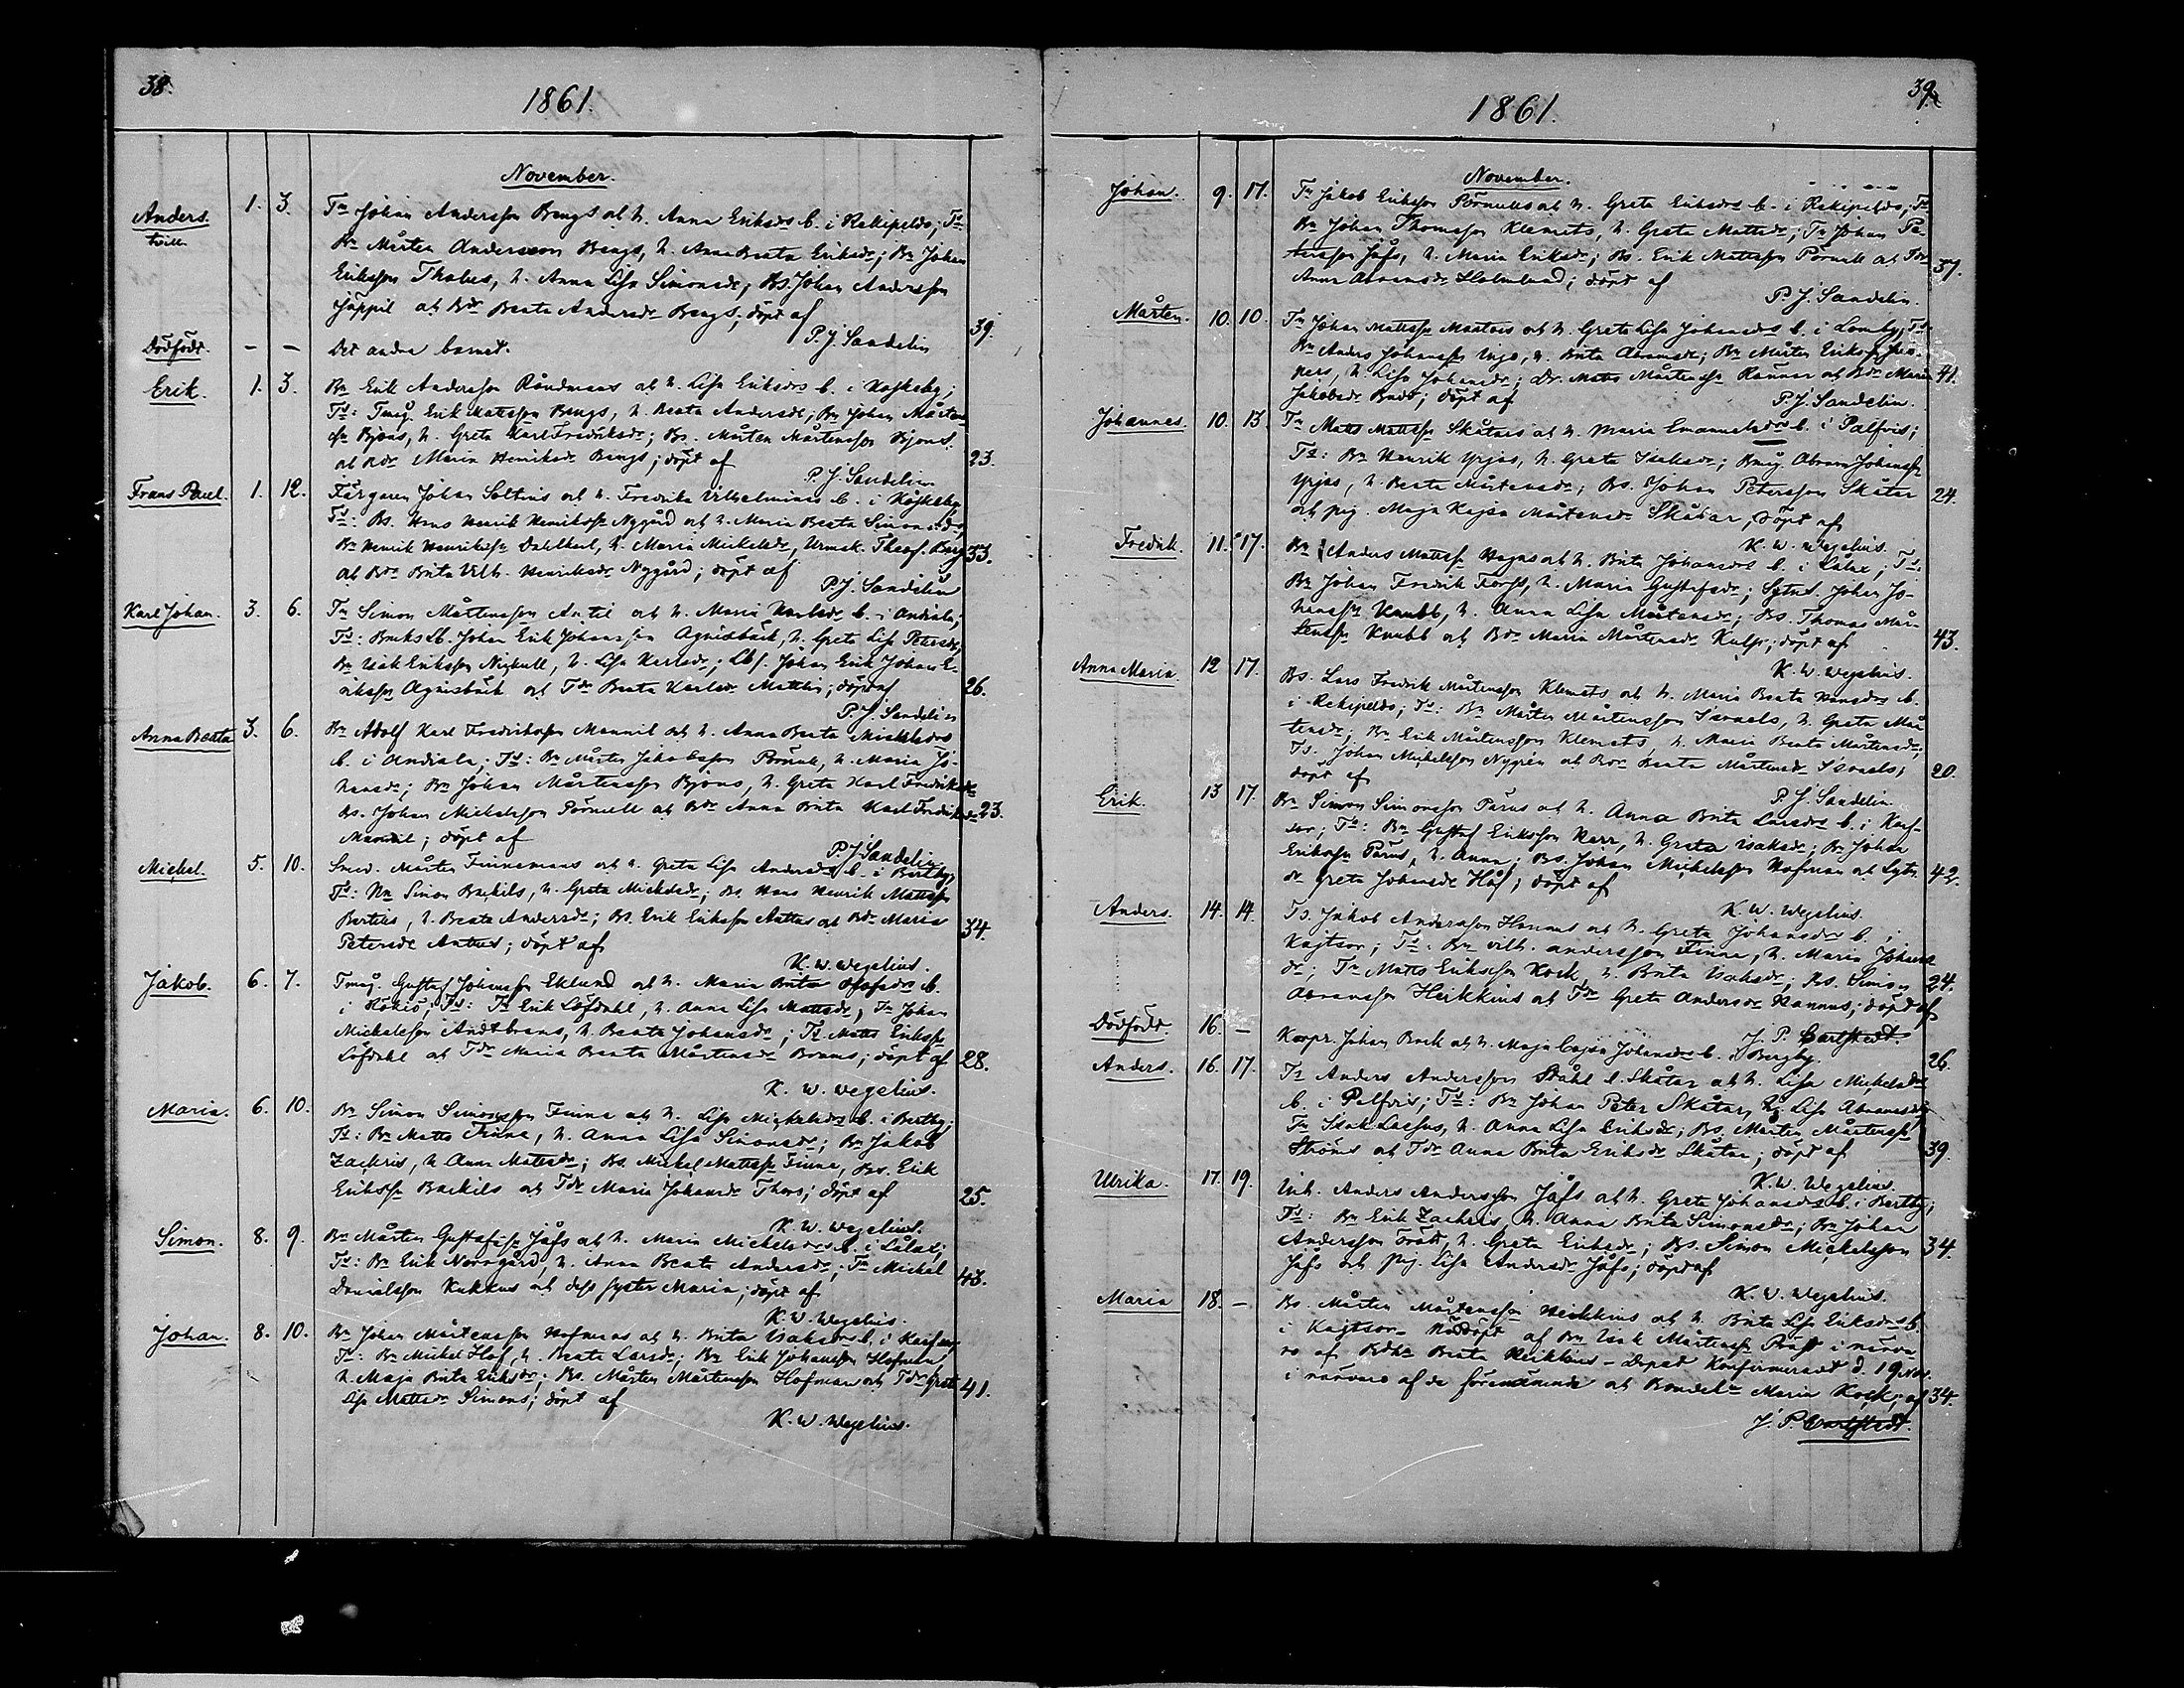 38.
1861.
November.
Anders. 1. 3. Tn Johan Andersson Bengs och h. Anna Eriksdr b. i Rekipeldo; Td:
tvill. Bn Mårten Andersson Bengs, h. Anna Beata Eriksdr; Bn Johan
Eriksson Thabus, h. Anna Lisa Simonsdr; Bs. Johan Andersson
Jåppil och Bdr Beata Andersdr Bengs; döpt af 39.
P. J. Sandelin
Dödfödt. — — Det andra barnet.
Erik. 1. 3. Bn Erik Andersson Råndmans och h. Lisa Eriksdr b. i Koskeby;
Td: Tmåg Erik Mattsson Bengs, h. Beata Andersdr; Bn Johan Mårtens-
son Bjons, h. Greta Karl Fredriksdr; Bs. Mårten Mårtensson Bjons
och Bdr Maria Henriksdr Bengs; döpt af 23.
P. J. Sandelin
Frans Pauel. 1. 12. Färgaren Johan Soltins och h. Fredrika Vilhelmina b. i Koskeby
Td: Bs. Hans Henrik Henriksson Nygård och h. Maria Beata Simonsdr,
Bn Henrik Henriksson Dahlkarl, h. Maria Mickelsdr, Urmak. Theof. Berg 33.
och Bdr Brita Vilh. Henriksdr Nygård; döpt af
P. J. Sandelin
Karl Johan. 3. 6. Tn Simon Mårtensson Antil och h. Maria Karlsdr b. i Andiala;
Td: Bruks Lb. Johan Erik Johansson Agnisbäck, h. Greta Lisa Petersdr,
Bn Isak Eriksson Niskull, h. Lisa Karlsdr; Lbs. Johan Erik Johan E-
riksson Agnisbäck och Tdr Beata Karlsdr Mattlin; döpt af 26.
P. J. Sandelin
Anna Beata 3. 6. Bn Adolf Karl Fredriksson Mannil och h. Anna Beata Mickelsdr
b. i Andiala; Td: Bn Mårten Jakobsson Pörnull, h. Maria Jo-
hansdr; Bn Johan Mårtensson Bjons, h. Greta Karl Fredriksdr
Bs. Johan Mickelsson Pörnull och Bdr Anna Brita Karl Fredriksdr 23.
Mannil; döpt af
P. J. Sandelin
Mickel. 5. 10. Smed. Mårten Finnemans och h. Greta Lisa Andersdr b. i Bertby,
Td: Bn Simon Backils, h. Greta Mickelsdr; Bs Hans Henrik Mattsson
Bertils, h. Beata Andersdr; Bs. Erik Eriksson Anttus och Bdr Maria 34.
Petersdr Anttus; döpt af
K. W. Wegelius.
Jakob. 6. 7. Tmåg. Gustaf Johansson Eklund och h. Maria Brita b.
i Rökiö; Td: Ts Erik Löfdahl, h. Anna Lisa Mattsdr, Tn Johan
Mickelsson Andtbrans, h. Beata Johansdr; Ts Matts Eriksson
Löfdahl och Tdr Maria Beata Mårtensdr Bruns; döpt af 28.
K. W. Wegelius.
Maria. 6. 10. Bn Simon Simonsson Finne och h. Lisa Mickelsdr b. i Bertby;
Td: Bn Matts Finne, h. Anna Lisa Simonsdr; Bn Jakob
Zachris, h Anna Mattsdr; Bs. Mickel Mattsson Finne, Bs. Erik
Eriksson Backils och Tdr Maria Johansdr Thors; döpt af 25.
K. W. Wegelius.
Simon. 8. 9. Bn Mårten Gustafsson Jåfs och h. Maria Mickelsdr b. i Lålax;
Td: Bn Erik Norrgård, h. Anna Beata Andersdr; Tn Mickel 43.
Danielsson Kukkus och dess syster Maria; döpt af
K. W. Wegelius.
Johan. 8. 10. Bn Johan Mårtensson Hofmans och h. Brita Isaksdr b. i Karfsor;
Td: Bn Mickel Hof, h. Beata Larsdr; Bn Erik Johansson Hofman,
h Maja Brita Eriksdr; Bs. Mårten Mårtensson Hofman och Tdr Greta 41.
Lisa Mattsdr Simons; döpt af
K. W. Wegelius.
39.
1861.
November.
Johan. 9. 17. Tn Jakob Eriksson Pörnulls och h. Greta Eriksdr b. i Rekipeldo; Td:
Bn Johan Thomasson Klemets, h. Greta Mattsdr; Tn Johan Pe-
tersson Jåfs, h. Maria Eriksdr; Bs. Erik Mattsson Pörnull och Tdr 37.
Anna Abramsdr Holmlund; döpt af
P. J. Sandelin.
Mårten. 10. 10. Tn Johan Mattsson Martois och h. Greta Lisa Johansdr b. i Lomby, Td:
Bn Anders Johansson Ingo, h. Brita Abramsdr; Bn Mårten Eriksson
pers, h. Lisa Johansdr; Dr. Matts Mårtensson Rannar och Bdr Maria 41.
Jakobsdr Budd; döpt af
P. J. Sandelin.
Johannes. 10. 13. Tn Matts Mattsson Skåtars och h. Maria Emanuelsdr b. i Palfvis;
Td: Bn Henrik Yrjas, h. Greta Isaksdr; Bmåg. Abram Johansson
Yrjas, h. Beata Mårtensdr; Bs. Johan Petersson Skåtar 24.
och pig. Maja Kajsa Mårtensdr Skåtar, döpt af
K. W. Wegelius.
Fredrik. 11. 17. Bn Anders Mattsson Hagns och h. Brita Johansdr b. i Lålax; Td:
Bn Johan Fredrik Forss, h. Maria Gustafsdr; Sytnd. Johan Jo-
hansson Knubb, h. Anna Lisa Mårtensdr; Bs. Thomas Mår-
tensson Knubb och Bdr Maria Mårtensdr Kulp; döpt af 43.
K. W. Wegelius.
Anna Maria. 12 17. Bs. Lars Fredrik Mårtensson Klemets och h. Maria Beata Hansdr b.
i Rekipeldo; Td: Bn Mårten Mårtensson Israels, h. Greta Mår-
tensdr; Bn Erik Mårtensson Klemets, h. Maria Beata Mårtensdr;
Ts. Johan Mickelsson Nygrén och Bdr Beata Mårtensdr Israels; 20.
döpt af
P. J. Sandelin.
Erik. 13 17. Bn Simon Simonsson Pärus och h. Anna Brita Larsdr b. i Karf-
sor; Td: Bn Gustaf Eriksson Karr, h. Greta Isaksdr; Bn Johan
Eriksson Pärus, h. Anna; Bs. Johan Mickelsson Hofman och Sytn. 42.
dr Greta Johansdr Hof; döpt af
K. W. Wegelius.
Anders. 14. 14. Ts. Jakob Andersson Hannus och h. Greta Johansdr b. i
Kaitsor; Td: Bn Vilh. Andersson Finne, h. Maria Johans
dr; Tn Matts Eriksson Kock, h. Brita Isaksdr; Bs. Simon 24.
Abramsson Heikkius och Tdr Greta Andersdr Hannus; döpt af
J. P. Carlstedt.
Dödfödt. 16. — Korpr. Johan Bock och h. Maja Cajsa Johansdr b. i Bergby. 26.
Anders. 16. 17. Ts Anders Andersson Ståhl l. Skåtar och h. Lisa Mickelsdr
b. i Palfvis; Td: Bn Johan Peter Skåtar, h. Lisa Abramsdr;
Tn Isak Lassus, h. Anna Lisa Eriksdr; Bs. Mårten Mårtensson
Ströms och Tdr Anna Brita Eriksdr Skåtar; döpt af 39.
K. W. Wegelius.
Ulrika. 17. 19. Inh. Anders Andersson Jåfs och h. Greta Johansdr b. i Bertby;
Td: Bn Erik Zachris, h. Anna Brita Simonsdr; Bn Johan
Andersson Tråtts, h. Greta Eriksdr; Bs. Simon Mickelsson 34.
Jåfs och pig. Lisa Andersdr Jåfs; döpt af
K. W. Wegelius.
Maria 18. — Bs. Mårten Mårtensson Heikkius och h. Brita Lisa Eriksdr b.
i Kaitsor. Nöddöpt af Bn Isak Mårtensson Präst i närva
ro af Bdka Beata Heikkius – Dopet Konfirmeradt d. 19 Nov.
i närvaro af de förenämnde och Bondeh. Maria Kock; af 34.
J. P. Carlstedt.